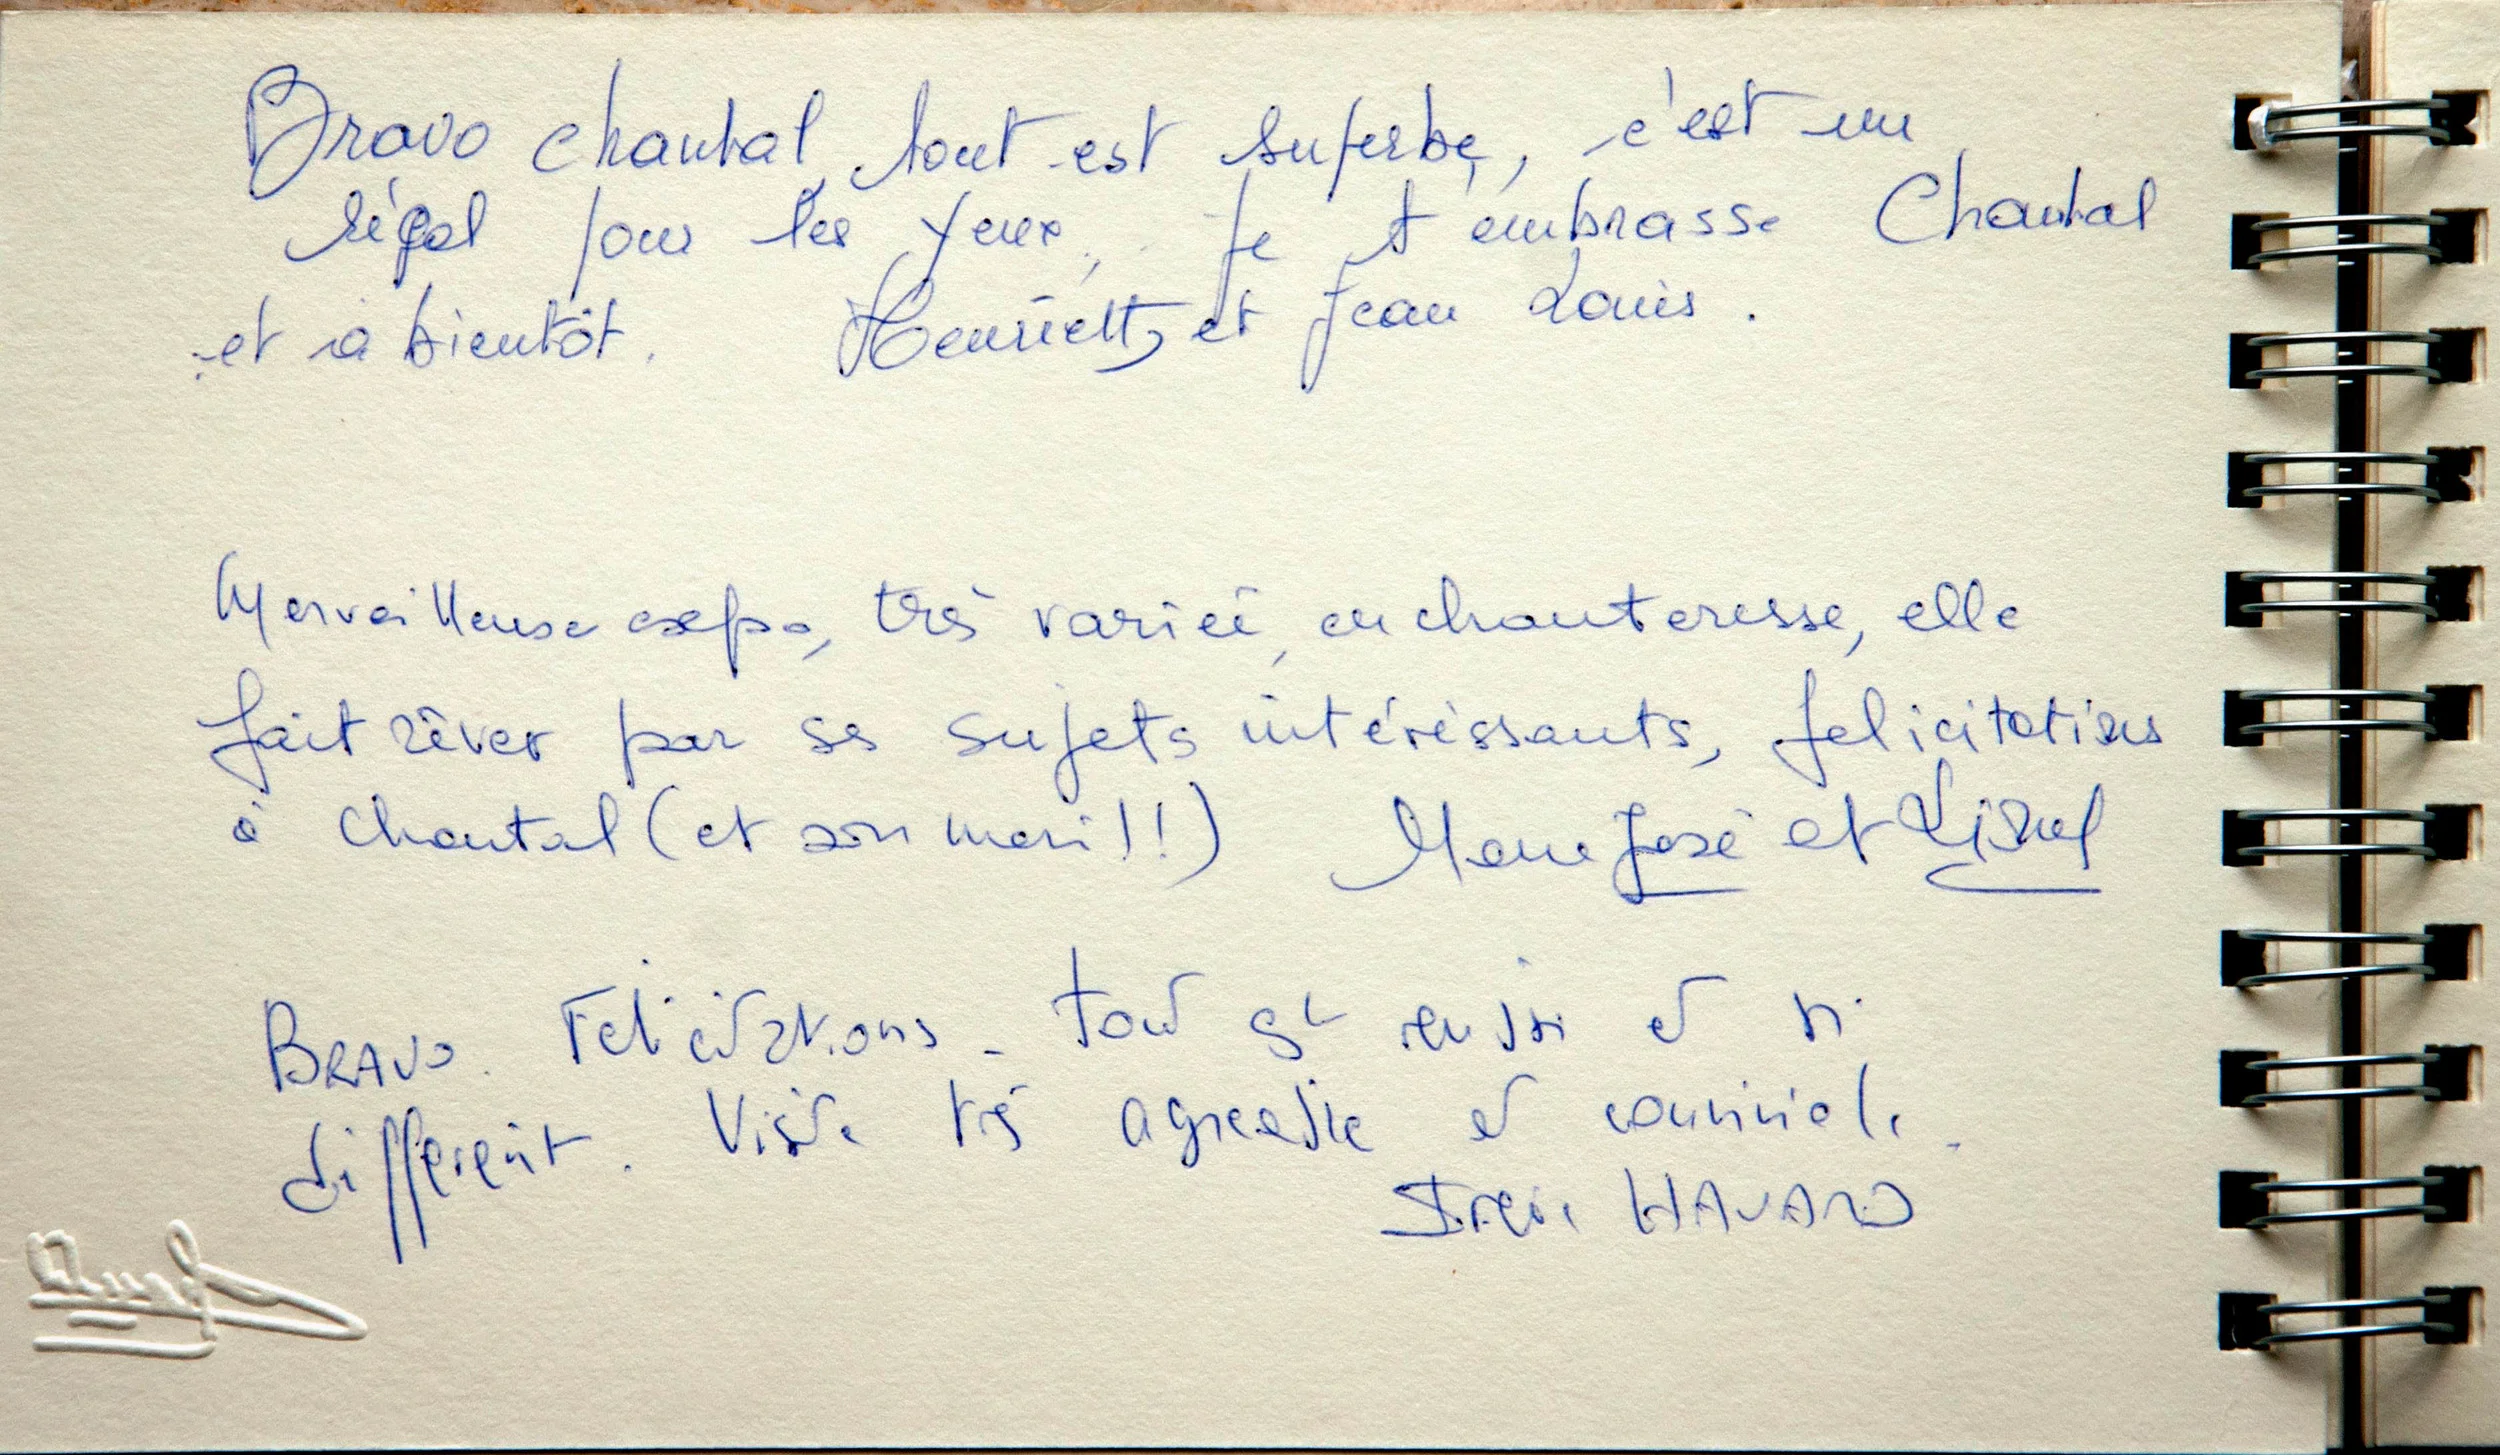 Bravo Chantal, tout est superbe, c'est un
régal pour les yeux, je t'embrasse Chantal
et à bientôt. Henriette et Jean Louis.
Merveilleuse expo, très variée, enchanteresse, elle
fait rêver par ses sujets intéréssants, felicitations
à Chantal (et son mari!!) Marie José et
BRAVO. Felicitations - tout est reussi et si
différent. Visite très agreable et conviviale.
HAVARD